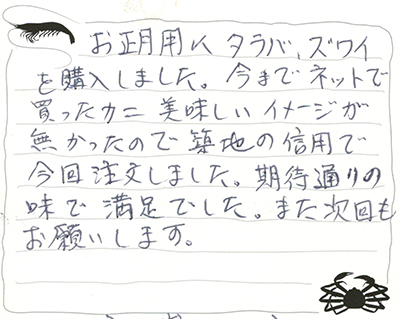 お正月用にタラバ、ズワイ
を購入しました。今までネットで
買ったカニ美味しいイメージが
無かったので築地の信用で
今回注文しました。期待通りの
味で満足でした。また次回も
お願いします。